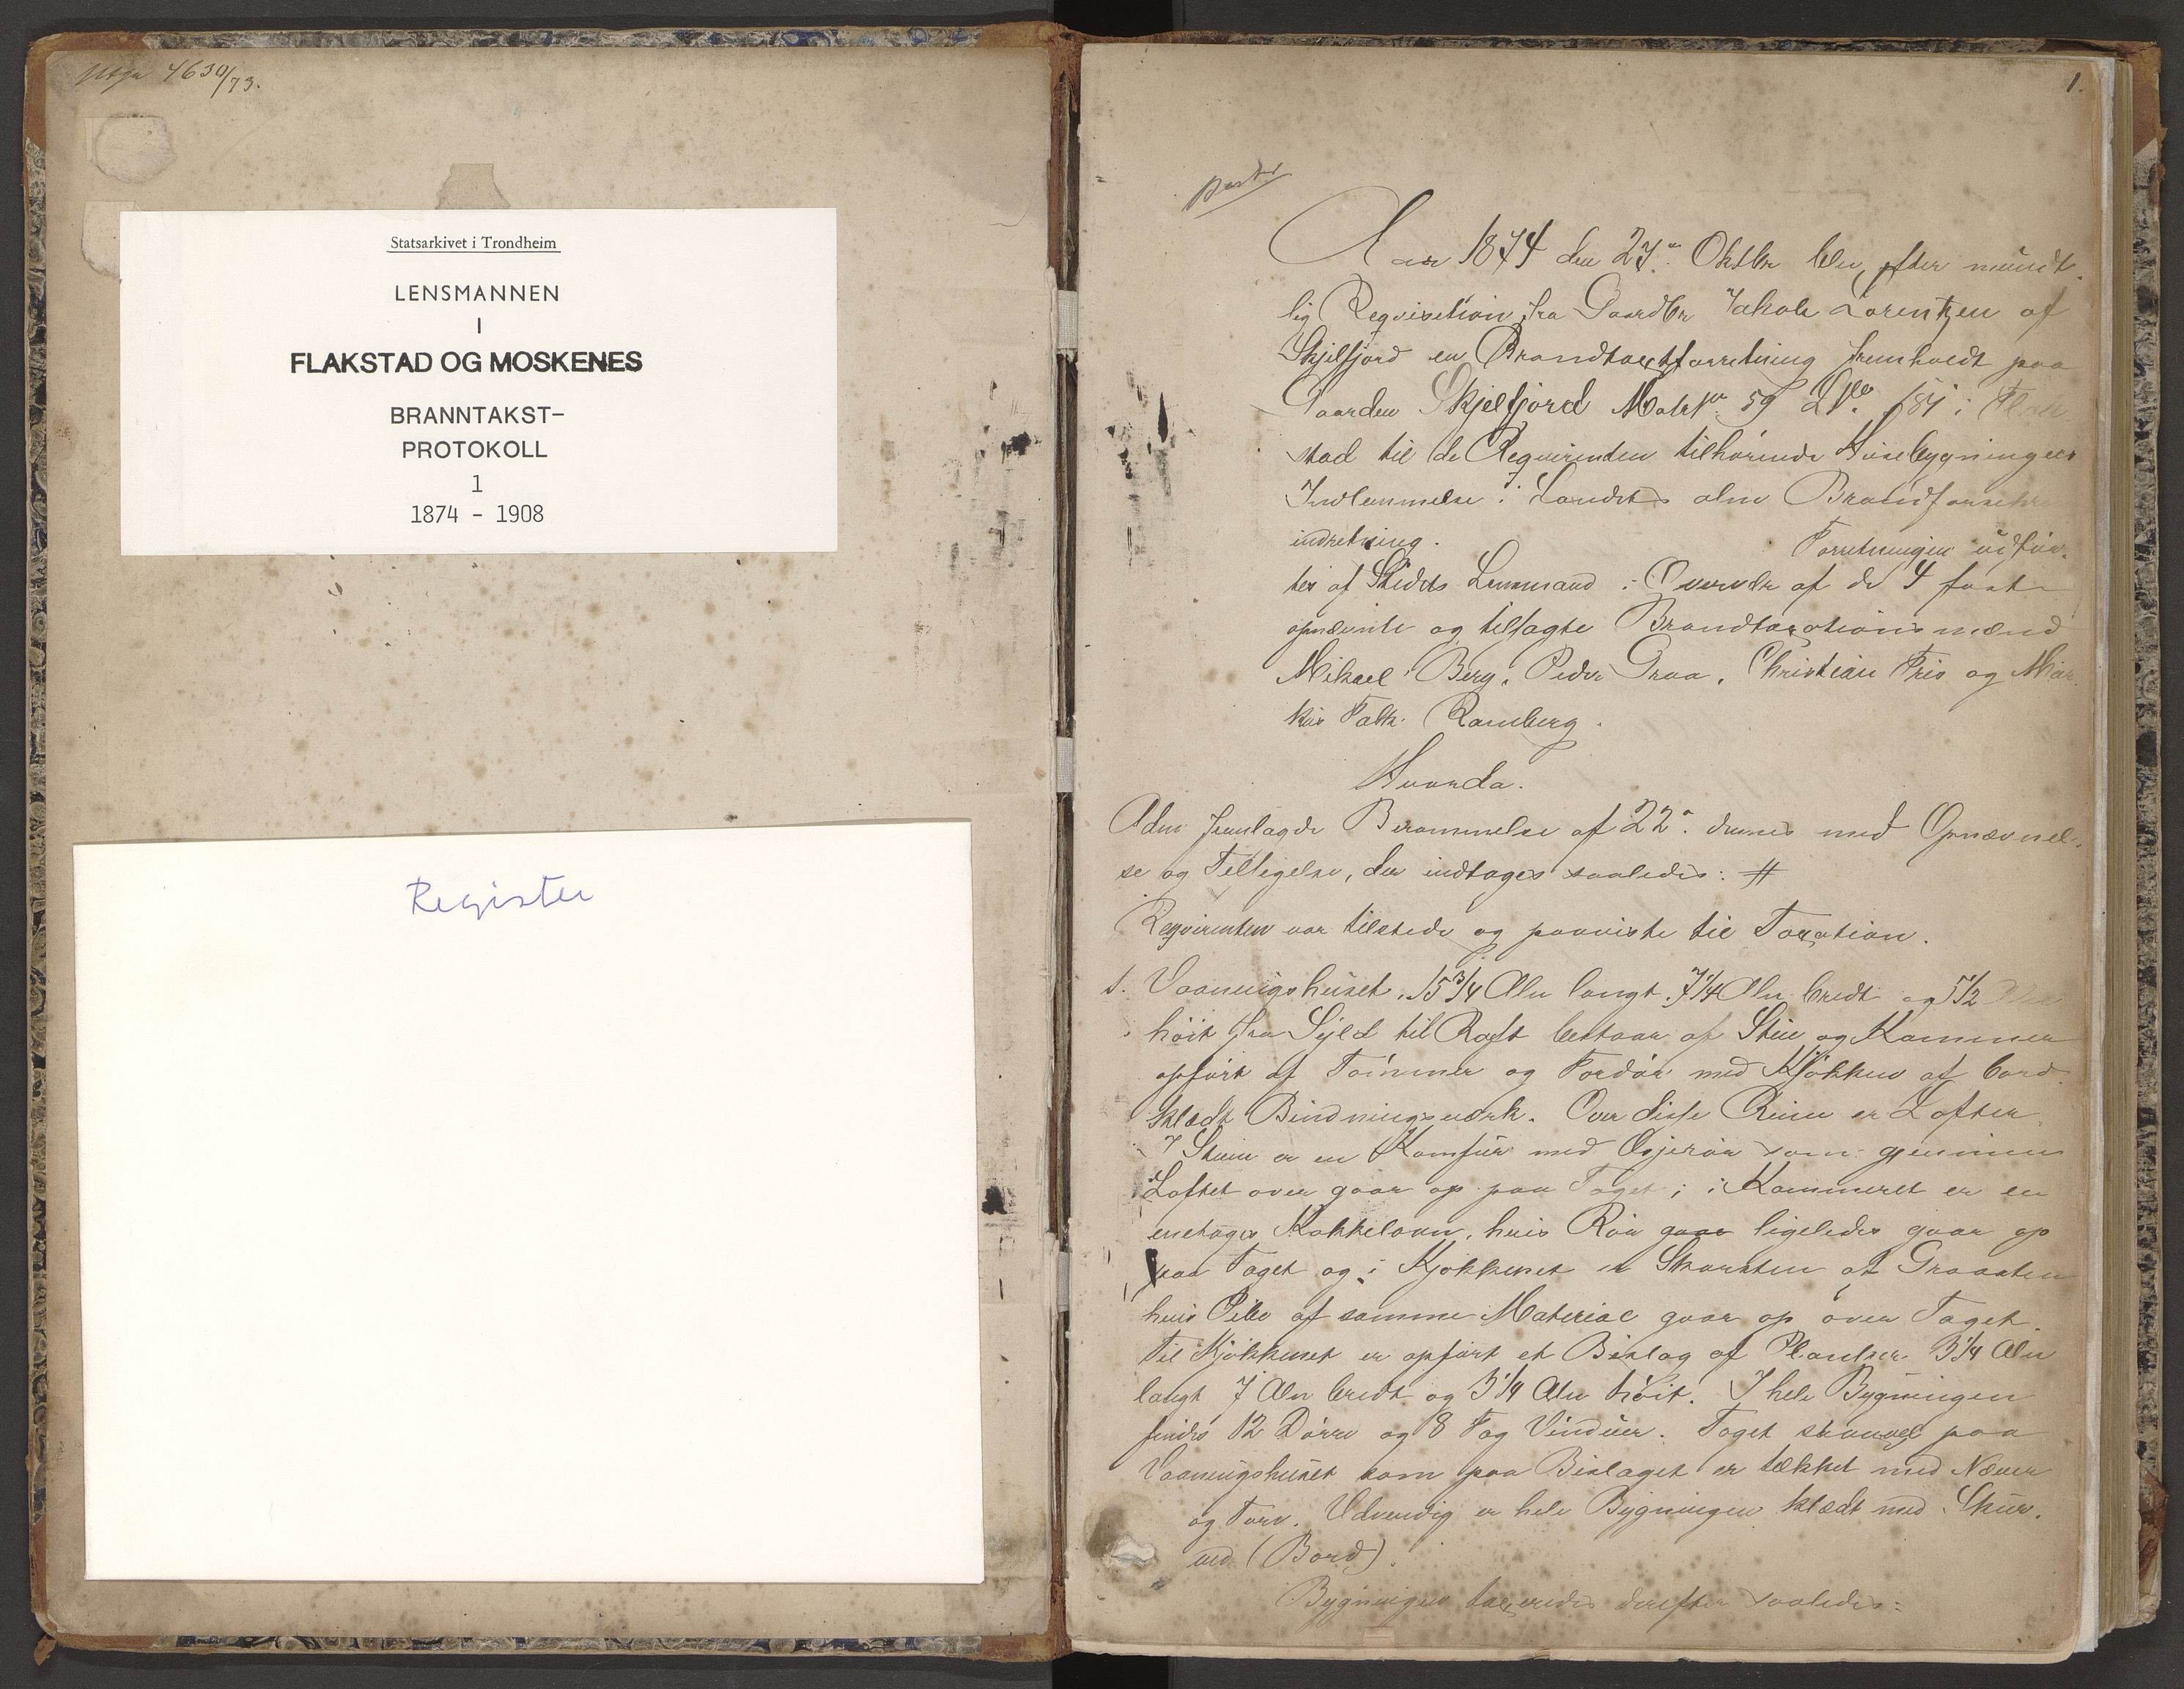 4630/73.
Statsarkivet i Trondheim
LENSMANNEN
I
FLAKSTAD OG MOSKENES
BRANNTAKST-
PROTOKOLL
1
1874 - 1908
Register
1.
Aar 1874 den 27de Oktbr blev efter mundt
lig Reqvisition fra Gaardbr Jakob Lorentzen af
Skjelfjord en Brandtaxtforretning fremholdt paa
Gaarden Skjelfjord Matr No 59 i Flak
stad til de Reqvirenten tilhørende Husebygningers
Indlemmelse i Landets alm Brandforsikr
indretning.
Forretningen udfør-
tes af Stedets Lensmand i Overvær af de 4 fast
opnævnte og tilsagte Brandtaxationsmænd
Mikael Berg, Peder Graa, Christian Friis og Mar
kus Falk Ramberg.
Hvorda.
Adm fremlagde Berammelse af 22de dennes med Opnævnel-
se og Tilsigelse, der indtages saaledes: #
Reqvirenten var tilstede og paaviste til Taxation.
1. Vaaningshuset, 15 3/4 Aln langt, 7 1/4 Aln bredt og 5 1/2 Aln
høit fra Syld til Raft bestaar af Stue og Kammer
opført af Tømmer og Fordør med Kjøkken af bord
klædt Bindningsværk. Over disse Rum er Lofter
I Stuen er en Komfur med Osjerør som gjennem
Loftet over gaar op paa Taget; i Kammeret er en
enetages Kakkelovn, hvis Rør gaar ligeledes gaar op
paa Taget og i Kjøkkenet er Skorsten af Graasten
hvis Pibe af samme Materiae gaar op over Taget.
Til Kjøkkenet er opført et Bislag af Planker 3 1/4 Aln
langt 7 Aln bredt og 3 1/4 Aln høit. I hele Bygningen
findes 12 Dørre og 8 Fag Vinduer. Taget saavel paa
Vaaningshuset som paa Bislaget er tækket med Næver
og Torv. Udvendig er hele Bygningen klædt med Skur-
ved (Bord).
Bygningen taxeredes derefter saaledes: